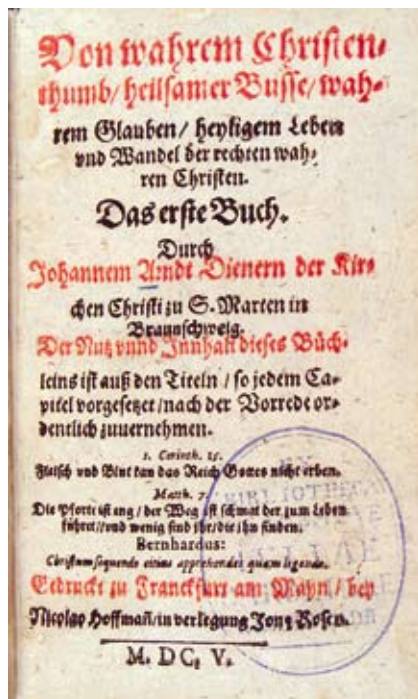 Von wahrem Christen⸗
thumb/ heilsamer Busse/ wah⸗
rem Glauben/ heyligem Leben
vnd Wandel der rechten wah⸗
ren Christen.
Das erste Buch.
Durch
Johannem Arndt Dienern der Kir⸗
chen Christi zu S. Marten in
Braunschweig.
Der Nutz vnnd Innhalt dieses Büch⸗
leins ist auß den Titeln/ so jedem Ca⸗
pitel vorgesetzet/ nach der Vorrede or⸗
dentlich zuuernehmen.
1. Corinth. 15.
Fleisch vnd Blut kan das Reich Gottes nicht erben.
Matth. 7.
Die Pforte ist eng/ der Weg ist schmal der zum Leben
führet/ vnd wenig sind ihr/ die ihn finden.
Bernhardus:
Christum sequendo citius apprehendes quam legendo.
Gedruckt zu Franckfurt am Mayn/ bey
Nicolao Hoffmañ/ in verlegung Jonæ Rosen.
M. DC. V.
EX
BIBLIOTHECA